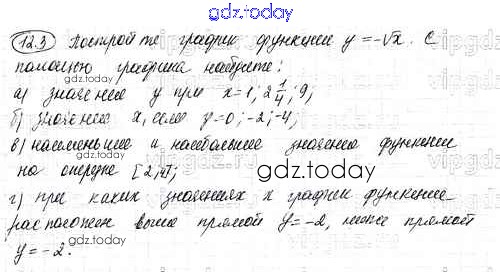 gdz.today
12.3 Постройте график функции y = -√x. С
помощью графика найдите:
gdz.today
а) значение y при x=1; 2 1/4; 9;
б) значение x, если y=0; -2; -4;
в) наименьшее и наибольшее значение функции
на отрезке [2;4];
gdz.today
г) при каких значениях x график функции
расположен выше прямой y=-2, ниже прямой
y=-2.
gdz.today